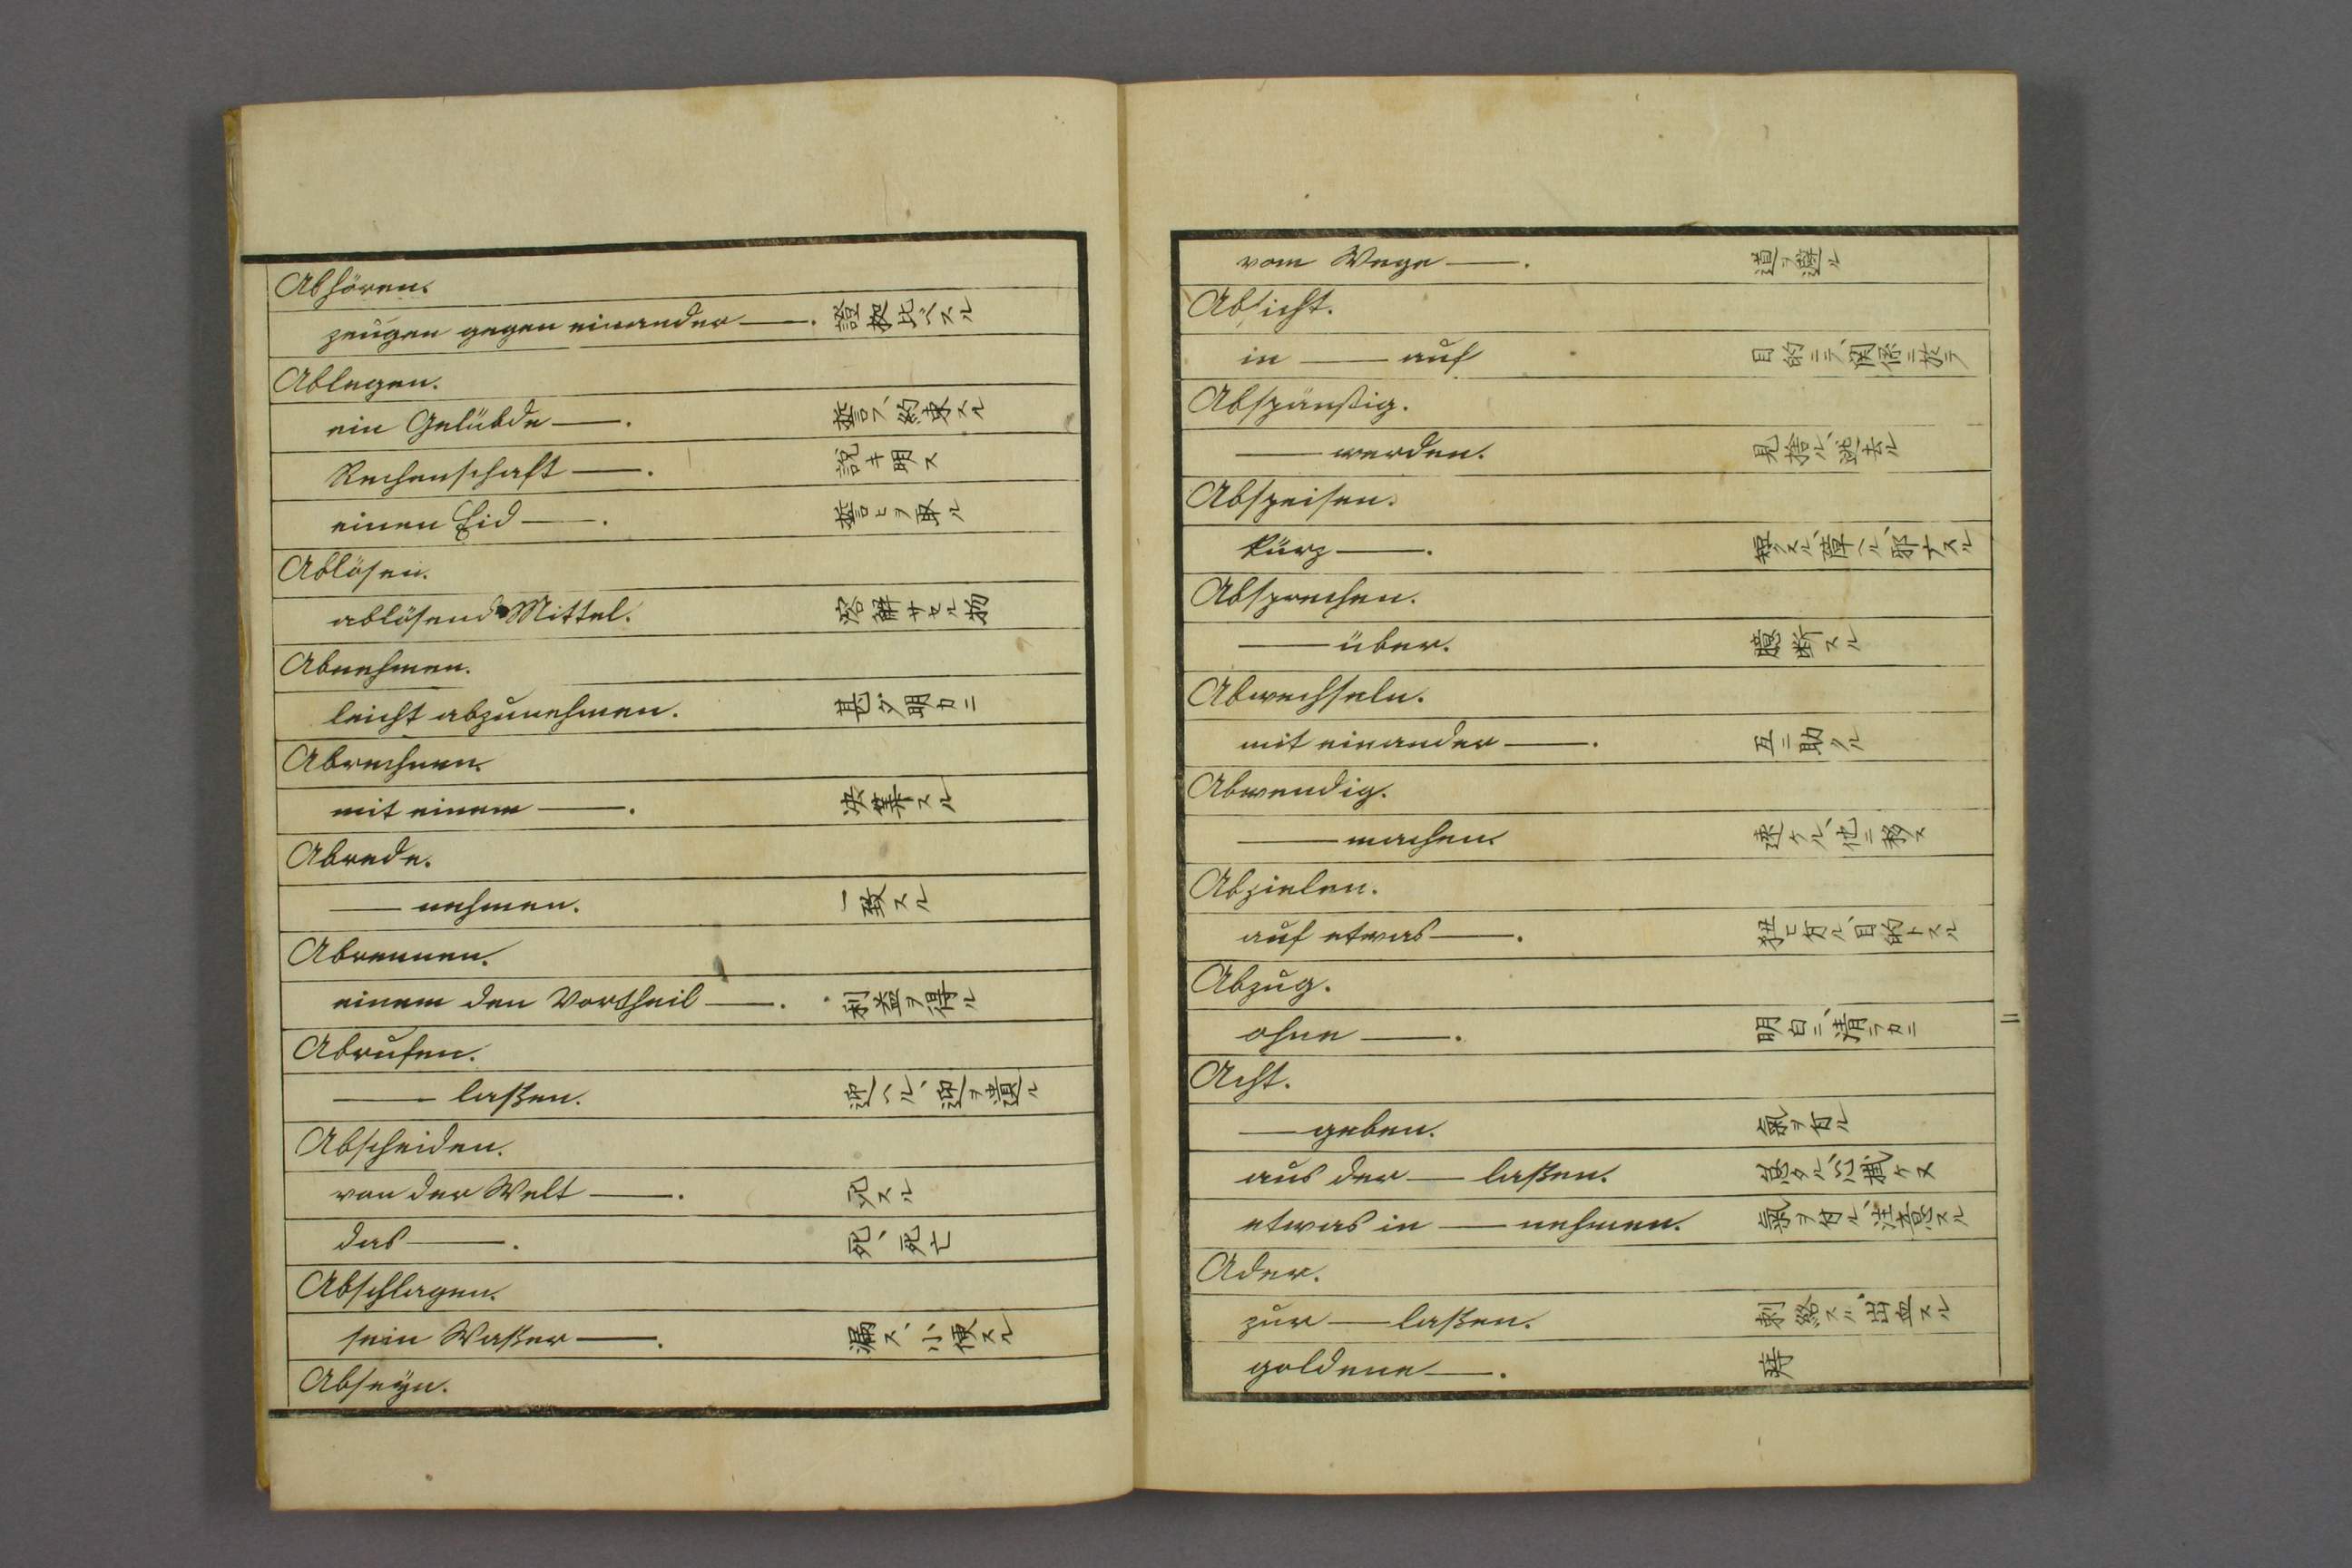 Abhören.
zeugen gegen einander —. 證拠比ベスル
Ablegen.
ein Gelübde —. 誓フ、約束スル
Rechenschaft —. 説キ明ス
einen Eid —. 誓ヒヲ取ル
Ablösen.
ablösend Mittel. 溶解サセル物
Abnehmen.
leicht abzunehmen. 甚ダ明カニ
Abrechnen.
mit einem —. 決算スル
Abrede.
— nehmen. 一致スル
Abrennen.
einem den Vortheil —. 利益ヲ得ル
Abrufen.
— laßen. 迎ヘル、迎ヲ遣ル
Abscheiden.
von der Welt —. 死スル
das —. 死、死亡
Abschlagen.
sein Waßer —. 漏ス、小便スル
Abseyn.
vom Wege —. 道ヲ避ル
Absicht.
in — auf 目的ニテ、関係ニ於テ
Abspänstig.
— werden. 見捨ル、逃去ル
Abspeisen.
kurz —. 短クスル
Absprechen.
— über. 臆断スル
Abwechseln.
mit einander —. 互ニ助クル
Abwendig.
— machen. 他ニ移ス
Abzielen.
auf etwas —. 目的トスル
Abzug.
ohne —. 明白ニ、清ラカニ
Acht.
— geben. 氣ヲ付ル
aus der — laßen. 怠タル、心掛ケヌ
etwas in — nehmen. 氣ヲ付ル、注意スル
Ader.
zur — laßen. 刺絡スル、出血スル
goldene —. 痔
二